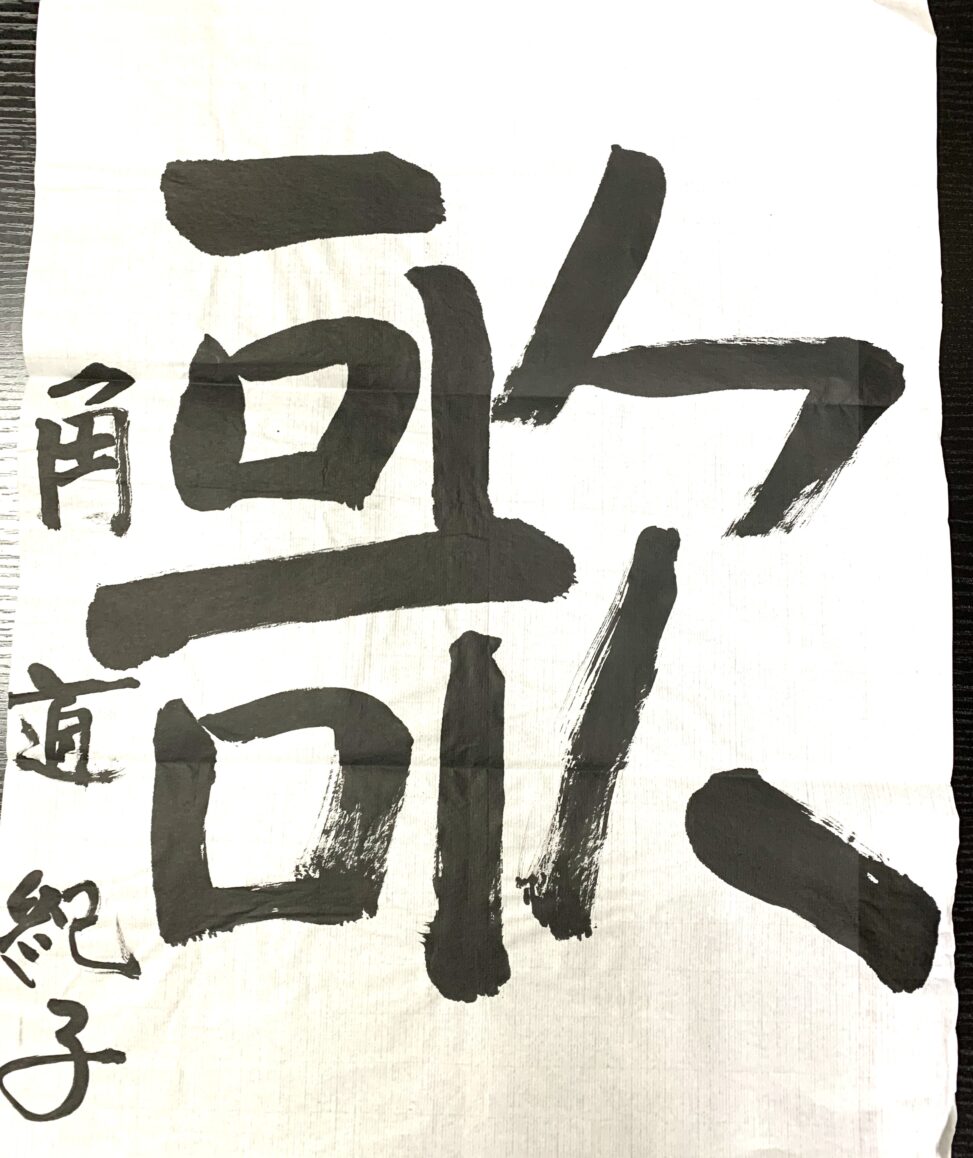 歌
角直紀子